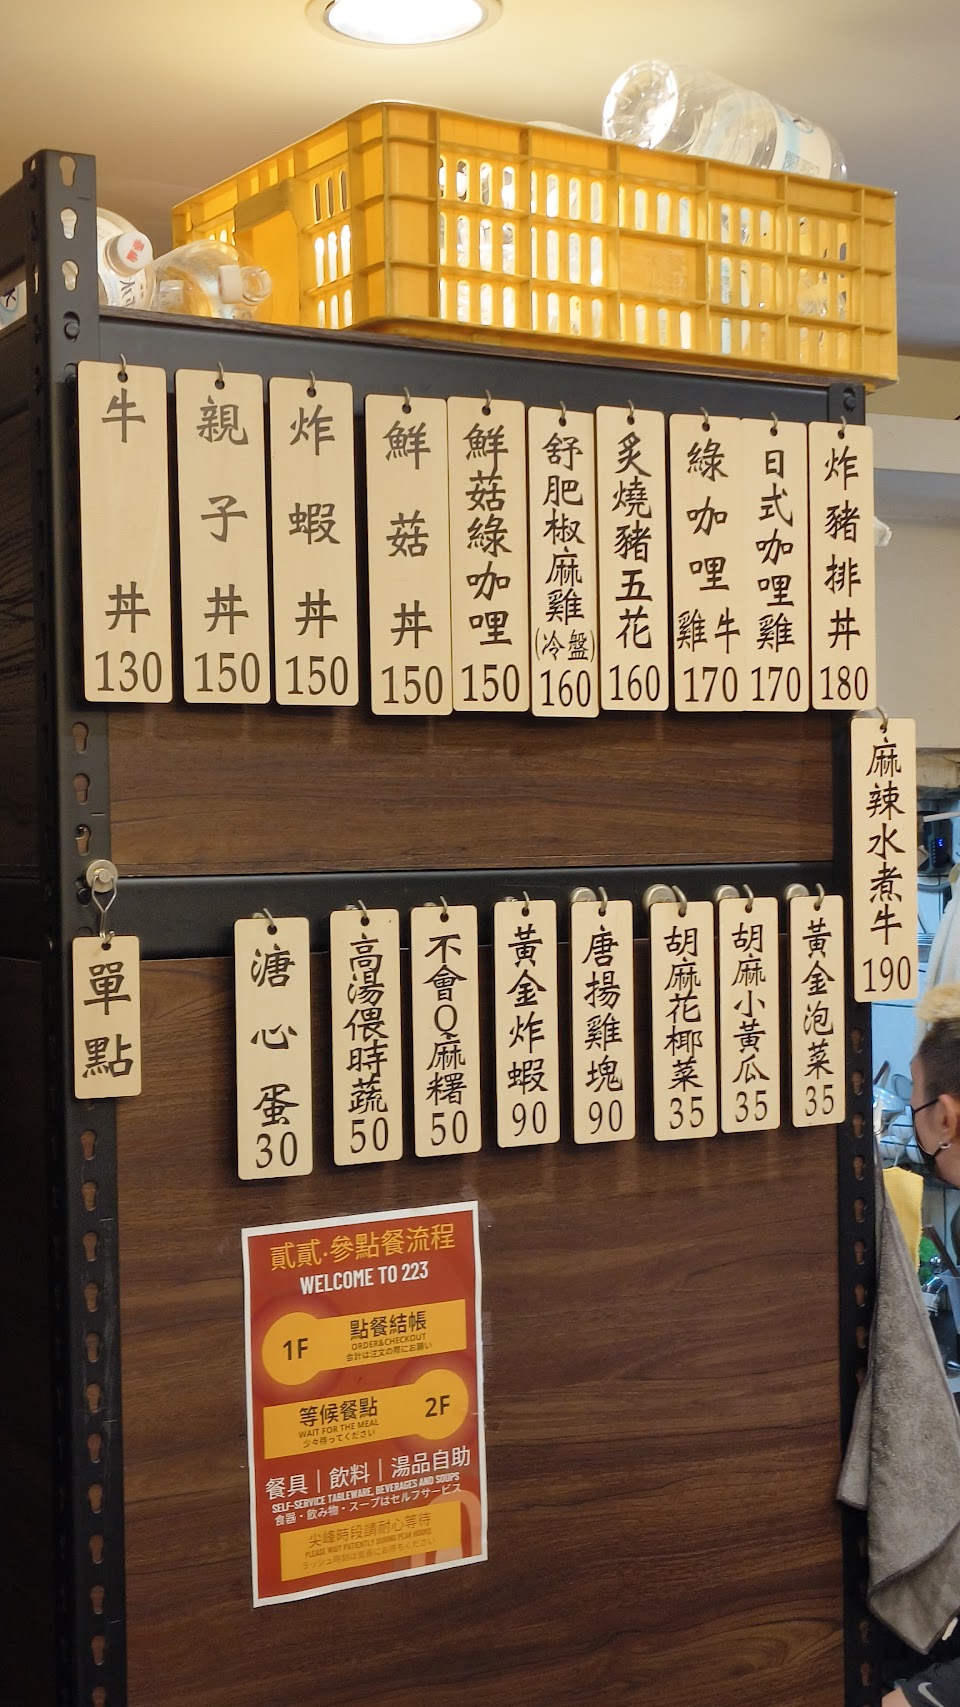 牛丼130
親子丼150
炸蝦丼150
鮮菇丼150
鮮菇綠咖哩150
舒肥椒麻雞(冷盤)160
炙燒豬五花160
綠咖哩雞牛170
日式咖哩雞170
炸豬排丼180
麻辣水煮牛190
單點
溏心蛋30
高湯偎時蔬50
不會Q麻糬50
黃金炸蝦90
唐揚雞塊90
胡麻花椰菜35
胡麻小黃瓜35
黃金泡菜35
貳貳·參點餐流程
WELCOME TO 223
1F
點餐結帳
ORDER&CHECKOUT
会計は注文の際にお願い
等候餐點
2F
WAIT FOR THE MEAL
少々待ってください
餐具｜飲料｜湯品自助
SELF-SERVICE TABLEWARE, BEVERAGES AND SOUPS
食器・飲み物・スープはセルフサービス
尖峰時段請耐心等待
PLEASE WAIT PATIENTLY DURING PEAK HOURS